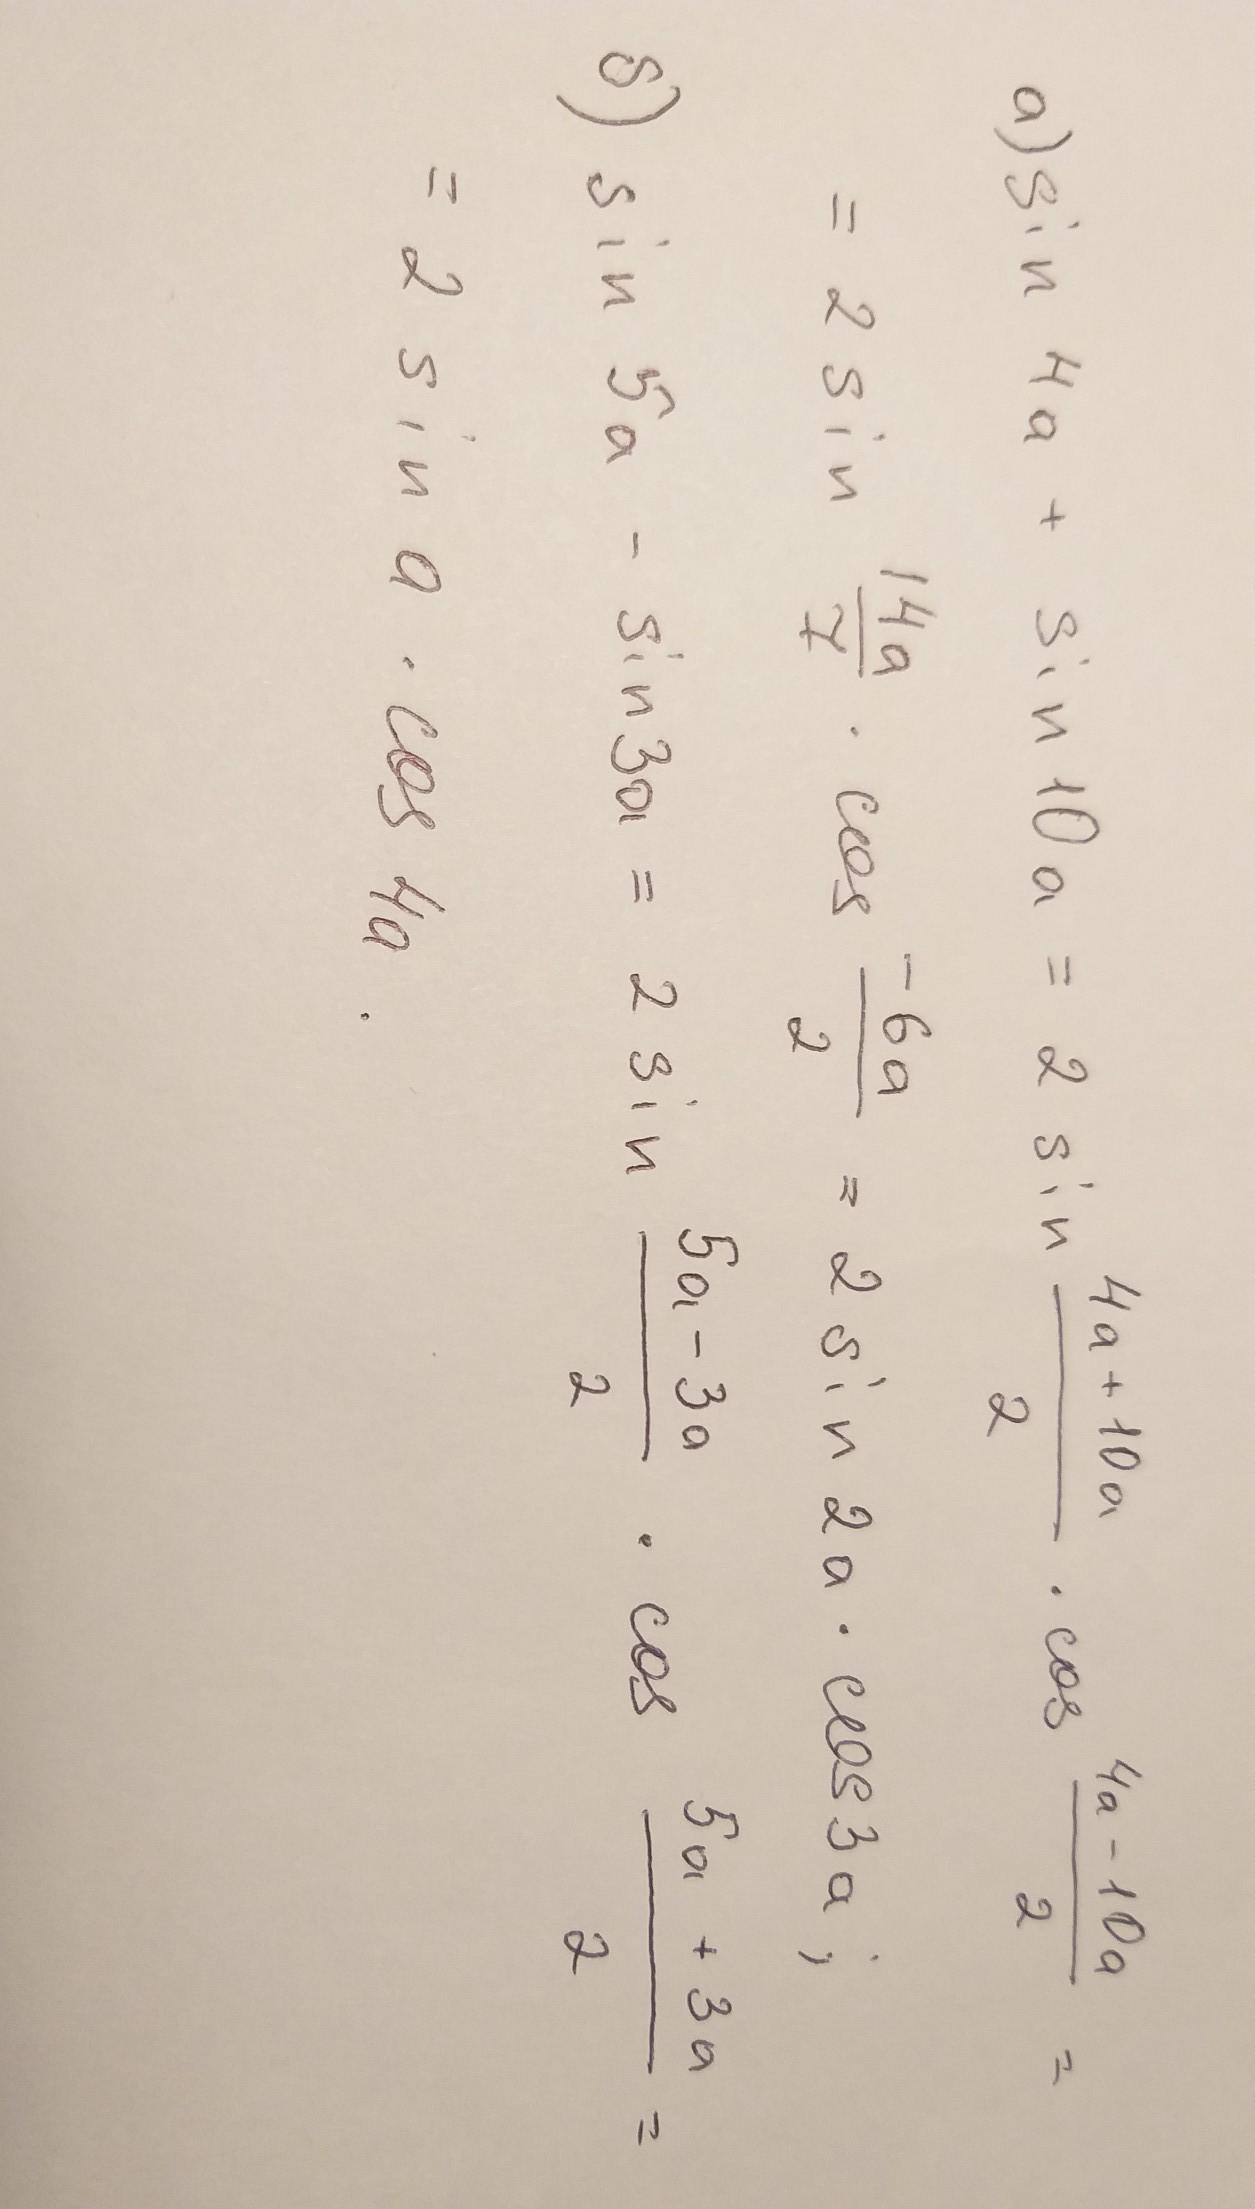 а) sin 4a + sin 10a = 2 sin (4a + 10a)/2 · cos (4a - 10a)/2 =
= 2 sin 14a/7 · cos -6a/2 = 2 sin 2a · cos 3a;
б) sin 5a - sin 3a = 2 sin (5a - 3a)/2 · cos (5a + 3a)/2 =
= 2 sin a · cos 4a.